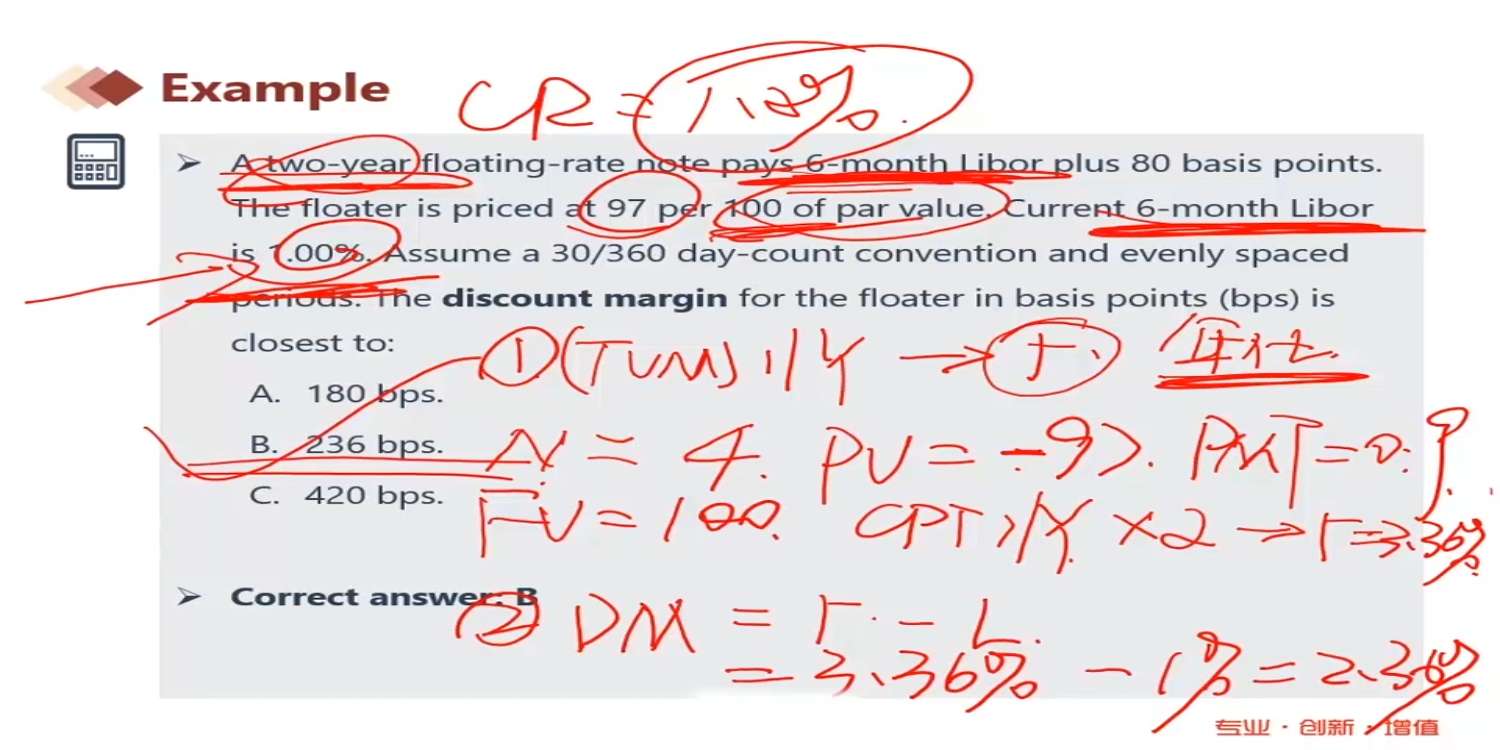 Example
CR = 1.8%.
➤ A two-year floating-rate note pays 6-month Libor plus 80 basis points.
The floater is priced at 97 per 100 of par value. Current 6-month Libor
is 1.00%. Assume a 30/360 day-count convention and evenly spaced
periods. The discount margin for the floater in basis points (bps) is
closest to:
① (TVM) I/Y → r.
A. 180 bps.
B. 236 bps.
N = 4. PV = -97. PMT = 0.9.
C. 420 bps.
FV = 100. CPT I/Y × 2 → r = 3.36%.
➤ Correct answer: B
② DM = r. - L.
= 3.36% - 1% = 2.36%
专业·创新·增值